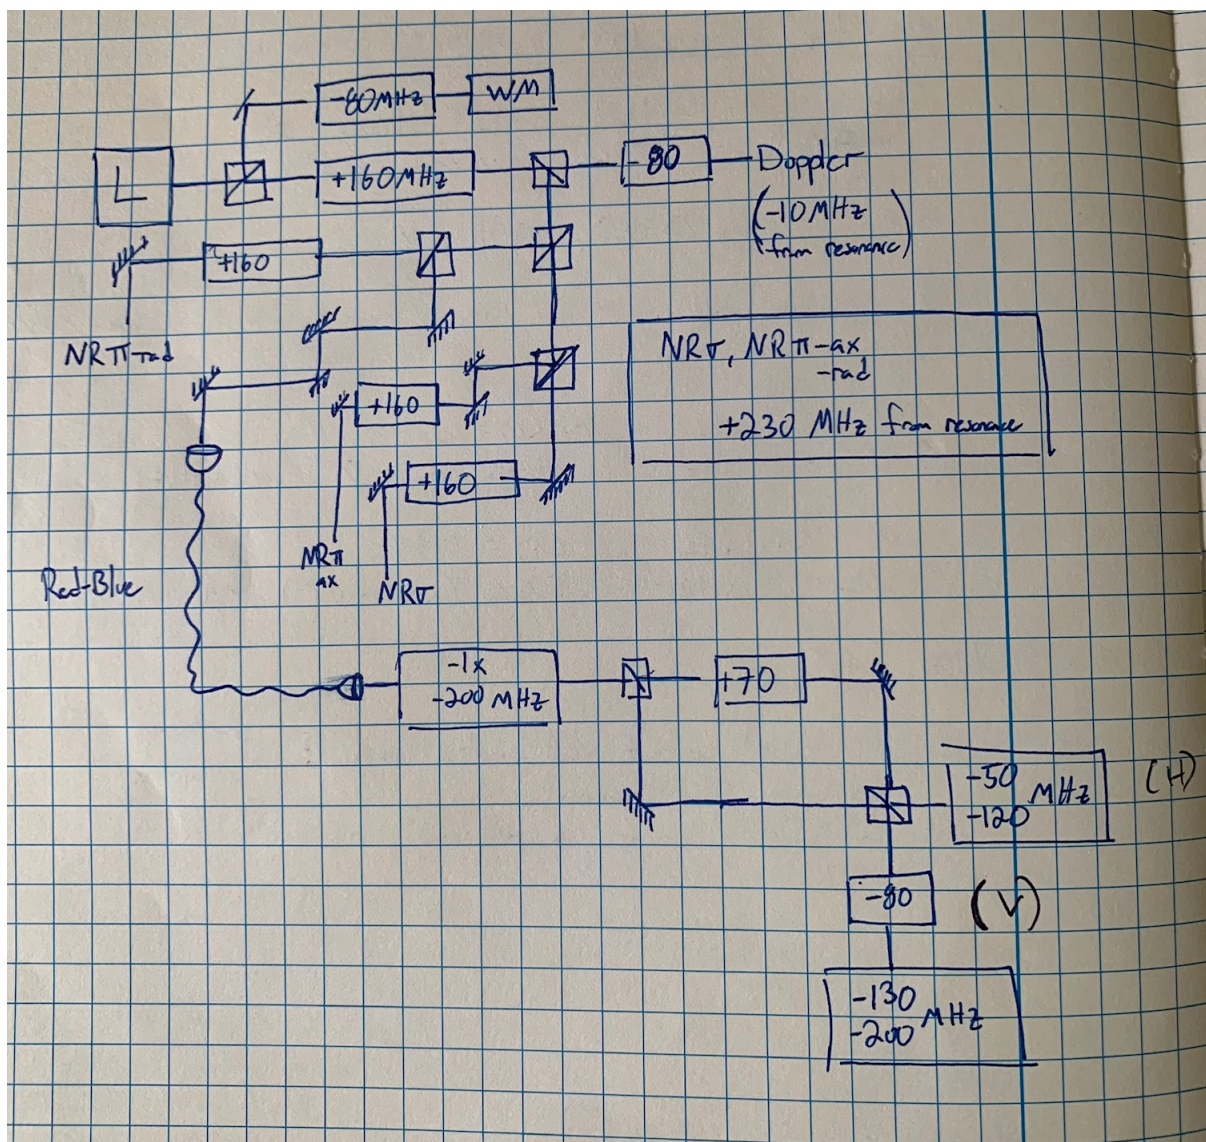 -80MHz
WM
L
+160MHz
-80
Doppler
(-10 MHz
from resonance)
+160
NRπ-rad
NRσ, NRπ-ax
-rad
+230 MHz from resonance
+160
+160
NRπ
ax
NRσ
Red-Blue
-1x
-200 MHz
+70
-50
-120
MHz
(H)
-80
(V)
-130
-200
MHz